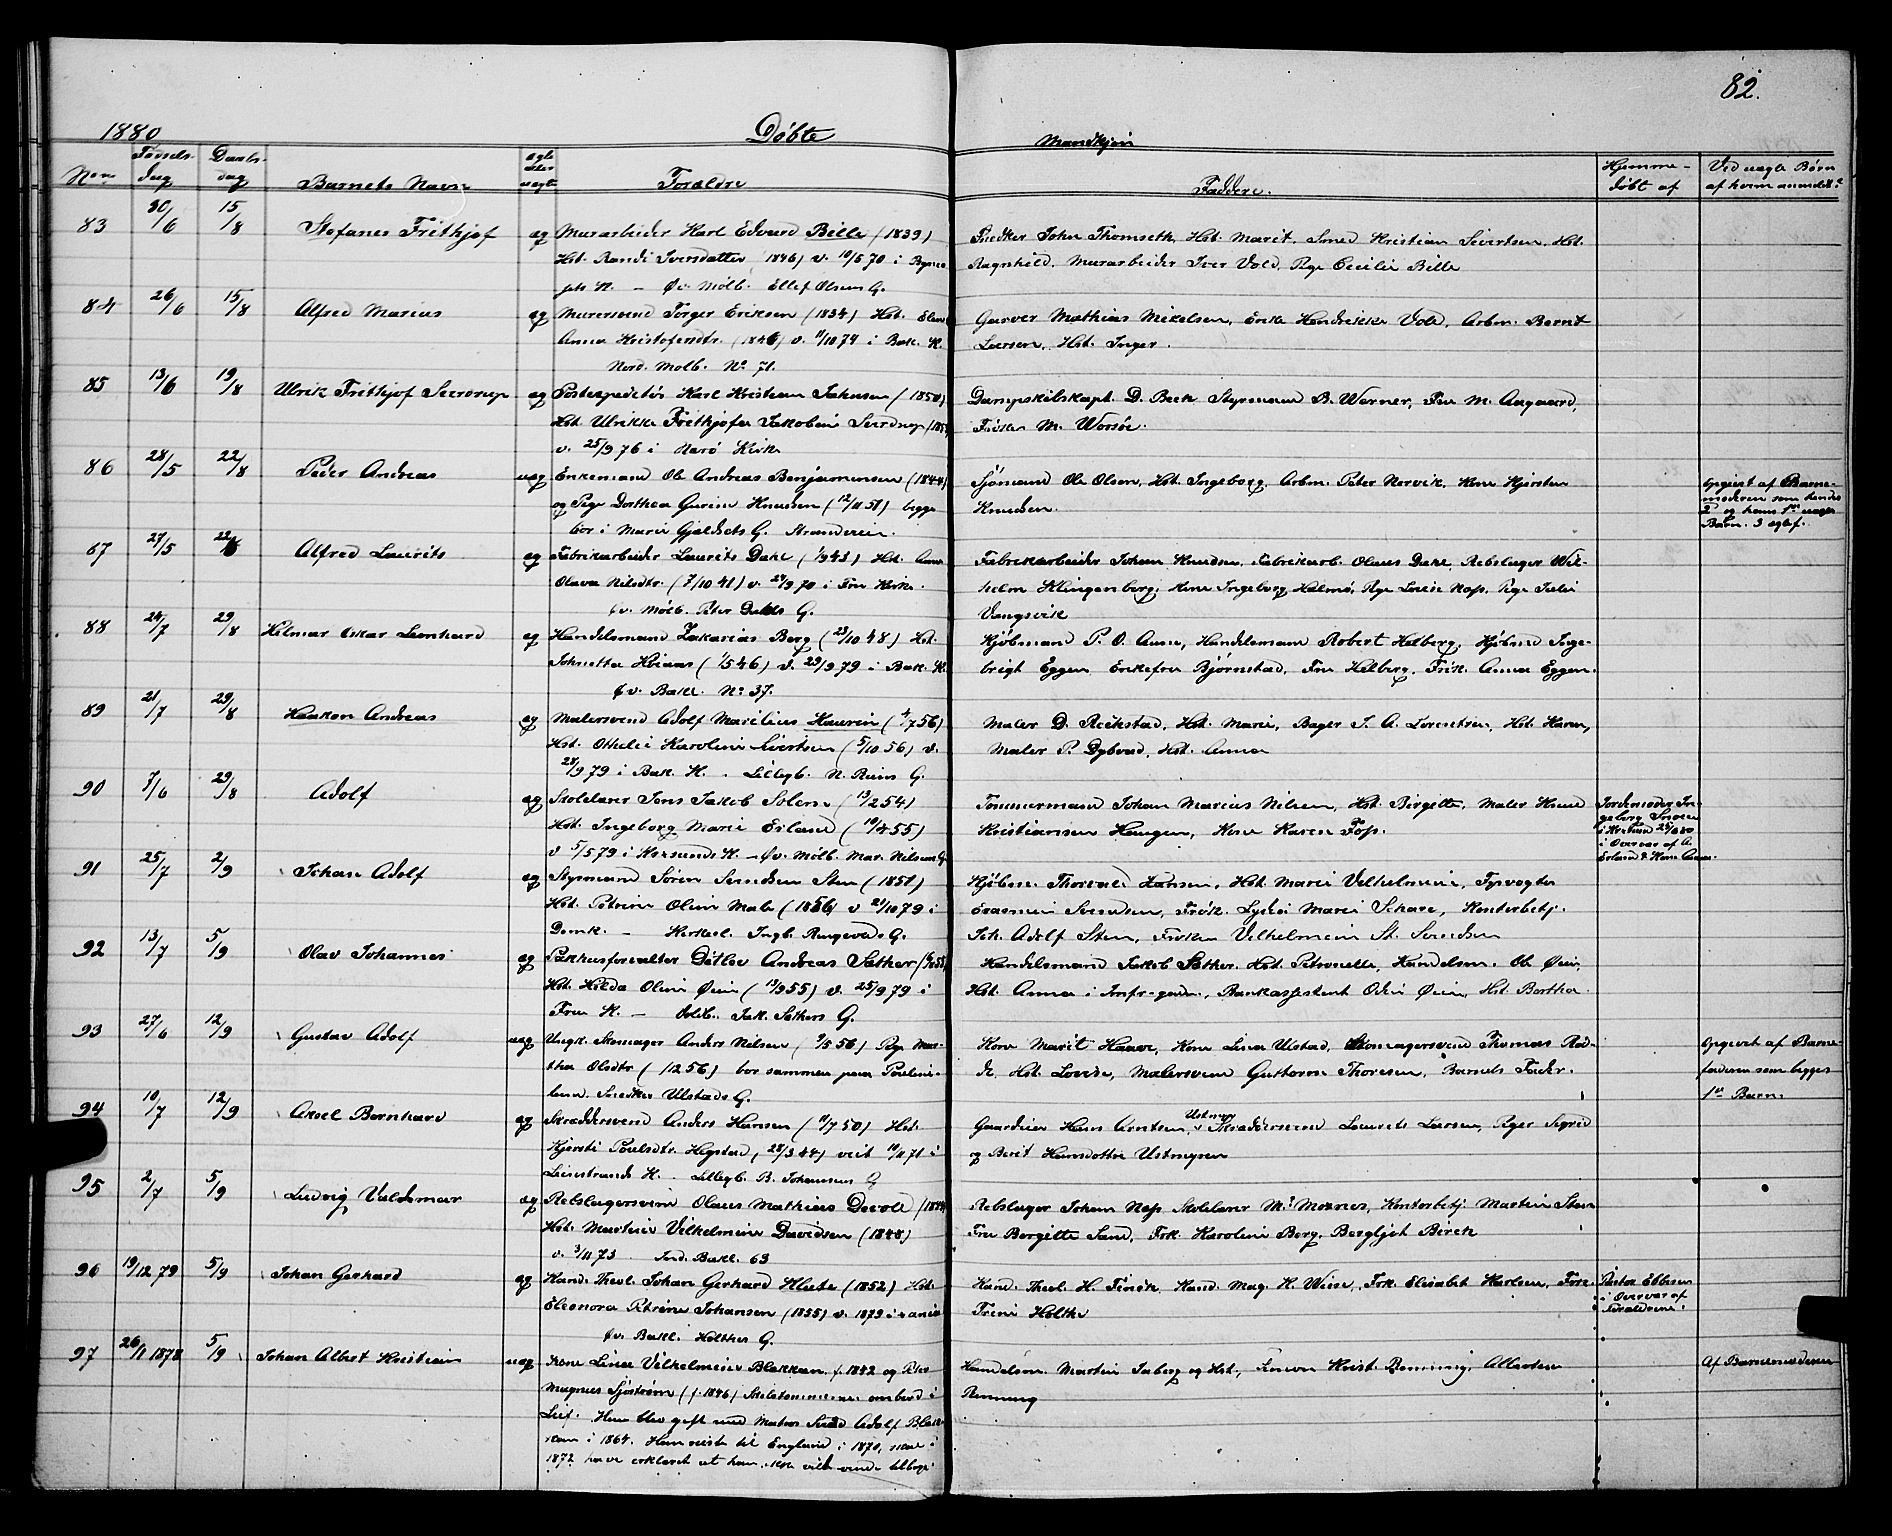 82.
1880 Døbte Mandkjøn
Nor. Fødsels-dag Daabs-dag Barnets Navn ægte eller uægte Forældre Faddere. Hjemme-døbt af Ved uægte Børn af hvem anmeldt?
83 30/6 15/8 Stefanes Frithjof æg Murarbeider Karl Edvard Bille (1839)
Hst. Randi Iversdatter (1846) v. 10/5 70 i Bynes
K. — Øv. Mølb. Ellef Olsens G.
Snedker John Thomseth, Hst. Marit, Smed Kristian Sivertsen, Hst.
Ragnhild, Murarbeider Iver Vold, Pige Cecilie Bille
84 26/6 15/8 Alfred Marius æg Murersvend Torger Eriksen (1834) Hst. Elen
Anna Kristofersdtr. (1846) v. 11/10 74 i Bak. K.
Nord. Molb. No 71.
Garver Mathias Mikelsen, Enke Hendrikke Vold, Arbm. Bernt
Larsen, Hst. Inger.
85 13/6 19/8 Ulrik Frithjof Sverdrup æg Postexpeditør Karl Kristian Jakobsen (1850)
Hst. Ulrikke Frithjofa Jakobine Sverdrup
v. 25/9 76 i Narø Kirke
Dampskibskapt. D. Beck Styrmand B. Werner, Fru M. Aagaard,
Frøken M. Worsøe.
86 28/5 22/8 Peder Andreas uæg Enkemand Ole Andreas Benjaminsen (1844)
og Pige Dorthea Gurine Knudsen (12/11 51) begge
bor i Marie Gjeldsets G. Strandveien.
Sjømand Ole Olsen, Hst. Ingeborg, Arbm. Peter Norvik, Kone Kjersten
Knudsen.
opgivet af Barne-
moderen som hendes
2 og hans 1ste uægte
Barn. 3 ægtef.
87 27/5 22/8 Alfred Laurits æg Fabrikarbeider Laurits Dahl (1/9 43) Hst. Anne
Olava Nilsdtr. (7/10 41) v. 29/9 70 i Frue Kirke.
Øv. Mølb. Peter Dahls G.
Fabrikarbeider Johan Knudsen, Fabrikarb. Olaus Dahl, Rebslager Wil-
helm Klingenberg, Kone Ingeborg Holmø, Pige Lovise Næss, Pige Julie
Vangsvik
88 24/7 29/8 Hilmar Oskar Leonhard æg Handelsmand Zakarias Berg (23/10 48) Hst.
Johnetta (1/5 46) v. 29/9 79 i Bak. K.
Øv. Bakl. No 37.
Kjøbmand P. O. Aune, Handelsmand Robert Helberg, Kjøbmd Inge-
brigt Eggen, Enkefru Bjørnstad, Fru Helberg, Frøk. Anna Eggen.
89 21/7 29/8 Haakon Andreas æg Malersvend Adolf Marelius Haurin (4/7 56)
Hst. Othelie Karoline Sivertsen (5/10 56) v.
28/9 79 i Bak. K. — Lillegb. N. Reins G.
Maler D. Rekstad, Hst. Marie, Bager J. A. Lorentzen, Hst. Karen,
Maler P. Dybvad, Hst. Anna
90 7/6 29/8 Adolf æg Skolelærer Jens Jakob Solem (13/2 54)
Hst. Ingeborg Marie Erland (10/4 55)
v. 5/5 79 i K. — Øv. Mølb. Mar. Nilsens G.
Tømmermand Johan Marius Nilsen, Hst. Birgitte, Maler Knud
Kristiansen Haugen, Kone Karen Foss.
Jordemoder In-
geborg
i Overvær af A.
Erland & Kone Anna.
91 25/7 2/9 Johan Adolf æg Styrmand Søren Svendsen Sten (1851)
Hst. Petrine Oline Male (1856) v. 21/10 79 i
Domk. — Kirkesl. Ingb. Ringeveds G.
Kjøbm. Thorvald Hansen, Hst. Marie Vilhelmine, Fyrvogter
Erasmin Svendsen, Frøk. Marie Schare, Kontorbetj.
Joh. Adolf Sten, Frøken Vilhelmine St. Svendsen
92 13/7 5/9 Olav Johannes æg Pakhusforvalter Detlev Andreas Sather
Hst. Hilda Oline Øien (13/9 55) v. 25/9 79 i
Frue K. — Jak. Sathers G.
Handelsmand Jakob Sather, Hst. Petronelle, Handelsm. Ole Øien,
Hst. Anna i Ilsfr-gaden, Bankassistent Odin Øien, Hst. Berthe.
93 27/6 12/9 Gustav Adolf uæg Ungk. Skomager Anders Nilsen (9/5 56) Pige Mar-
tha Olsdtr (12 56) bor sammen paa Pauline-
lund, Snedker Ulstads G.
Kone Marit Haave, Kone Lina Ulstad, Skomagersvend Thomas Rød-
de, Hst. Lovise, Malersvend Guttorm Thoresen, Barnets Fader.
opgivet af Barne-
faderen som begges
1ste Barn.
94 10/7 12/9 Aksel Bernhard æg Skræddersvend Anders Hansen (11/7 50) Hst.
Kjersti Poulsdtr. Hegstad, (28/3 44) viet 10/11 71 i
Leinstrands K. — Lillegb. B. Johansens G.
Gaardeier Hans Arntsen Ustmyr, Skræddersvend Laurits Larsen, Piger Sigrid
og Berit Hansdottre Ustmyren
95 2/7 5/9 Ludvig Valdemar æg Rebslagersvend Olaus Mathias Devold (1844)
Hst. Martine Vilhelmine Davidsen (1848)
v. 3/11 73 Ind. Bakl. 63
Rebslager Johan Næss, Skolelærer M. Moxnes, Kontorbetj Martin Steen
Fru Bergitte Sand, Frk. Karoline Berg, Bergljot Birch
96 19/12 79 5/9 Johan Gerhard æg Kand. Theol. Johan Gerhard Klute (1852) Hst.
Eleonora Petrine Johansen (1855) v. 1879 i
Øv. Bakl. Holthes G.
Kand. Theol. H. Finck, Kand. Mag. K. Wiese, Frk. Elisabet Karlsen, Frk.
Trine Holthe
Pastor Ebbesen
i Overvær af
Forældrene.
97 26/1 1878 5/9 Johan Albert Kristian uæg Kone Lina Vilhelmine Blakkan f. 1842 og Peter
Magnus Sjöström (f. 1846) Skibstømmermand ombord i
Leif. Hun blev gift med Matros Svend Adolf Blak-
kan i 1864. Han reiste til England i 1870, skal i
1872 have erklæret at han ikke vilde vende tilbage
Handelsm. Martin Saberg og Hst., Kristi Renning, Albertine
Renning
Af Barnemoderen